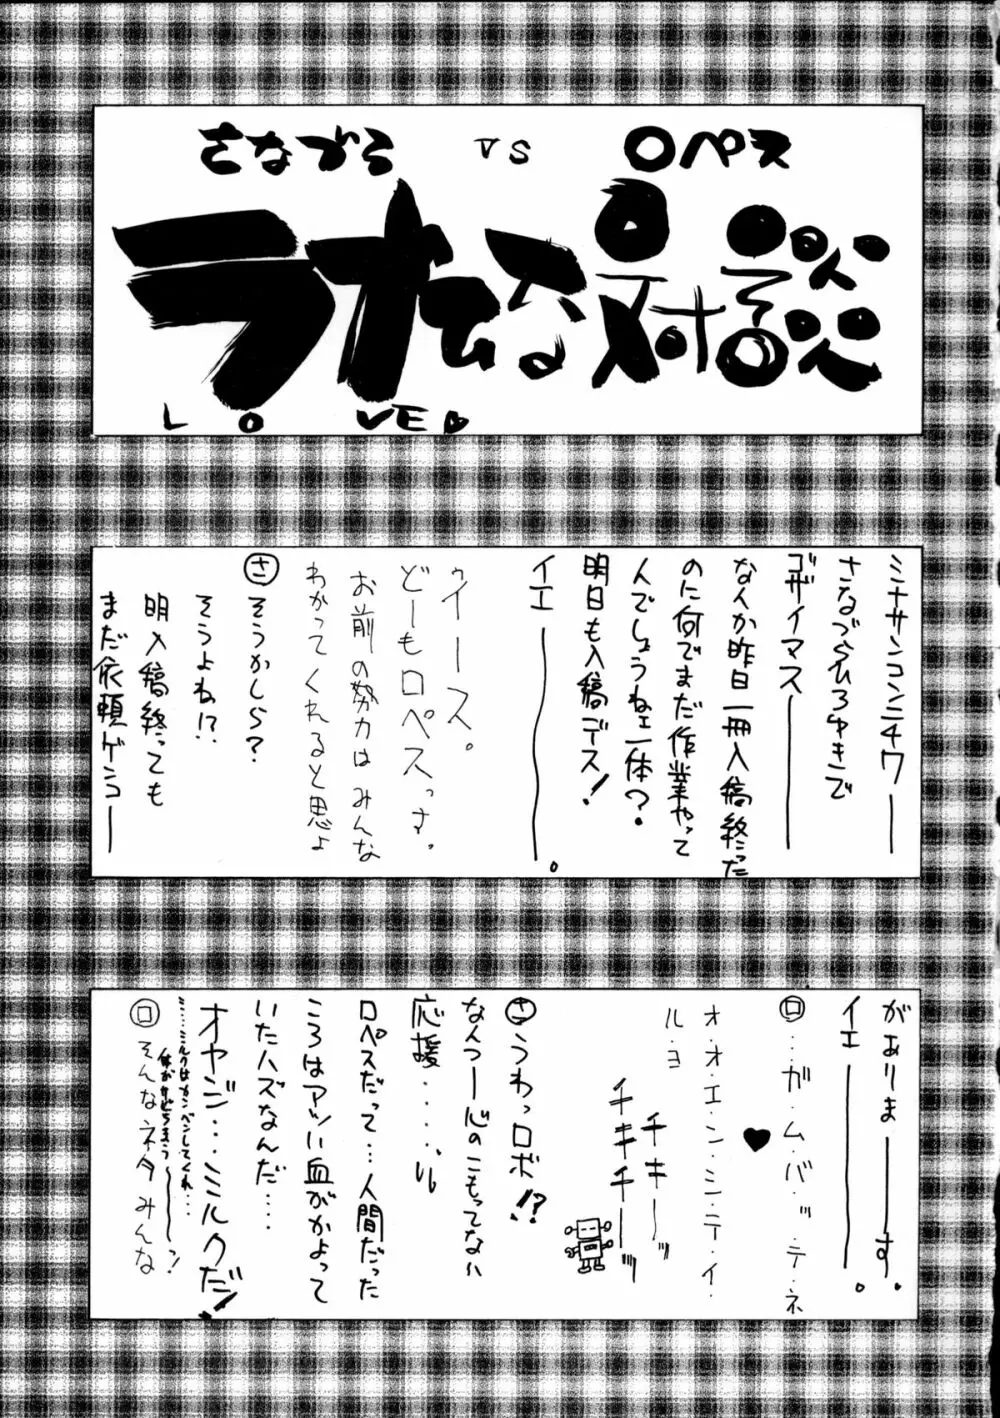 さなづら VS ロペス
ラオひな対談
LOVE♥
ミナサンコンニチワ――
さなづらひろゆきで
ゴザイマス――
なんか昨日一冊入稿終った
のに何でまだ作業やって
んでしょうねェ一体?
明日も入稿デス!
イエ――。
ウイース。
どーもロペスっす。
お前の努力はみんな
わかってくれると思よ
㋚そうかしら?
そうよね!?
明日入稿終っても
まだ依頼ゲンコー
がありま――す。
イエ――。
㋺…ガ・ム・バ・ッ・テ・ネ
♥
オ・オ・エ・ン・シ・テ・イ・
ル・ヨ
チキーッ
チキチーッ
㋚うわっロボ!?
なんつー心のこもってない
応援・・・・・い。
ロペスだって…人間だった
ころはアツい血がかよって
いたハズなんだ…
オヤジ…ミルクだ!
ミ……ミルクはカンベンしてくれ…
体がサビちまう――っ!
㋺そんなネタみんな